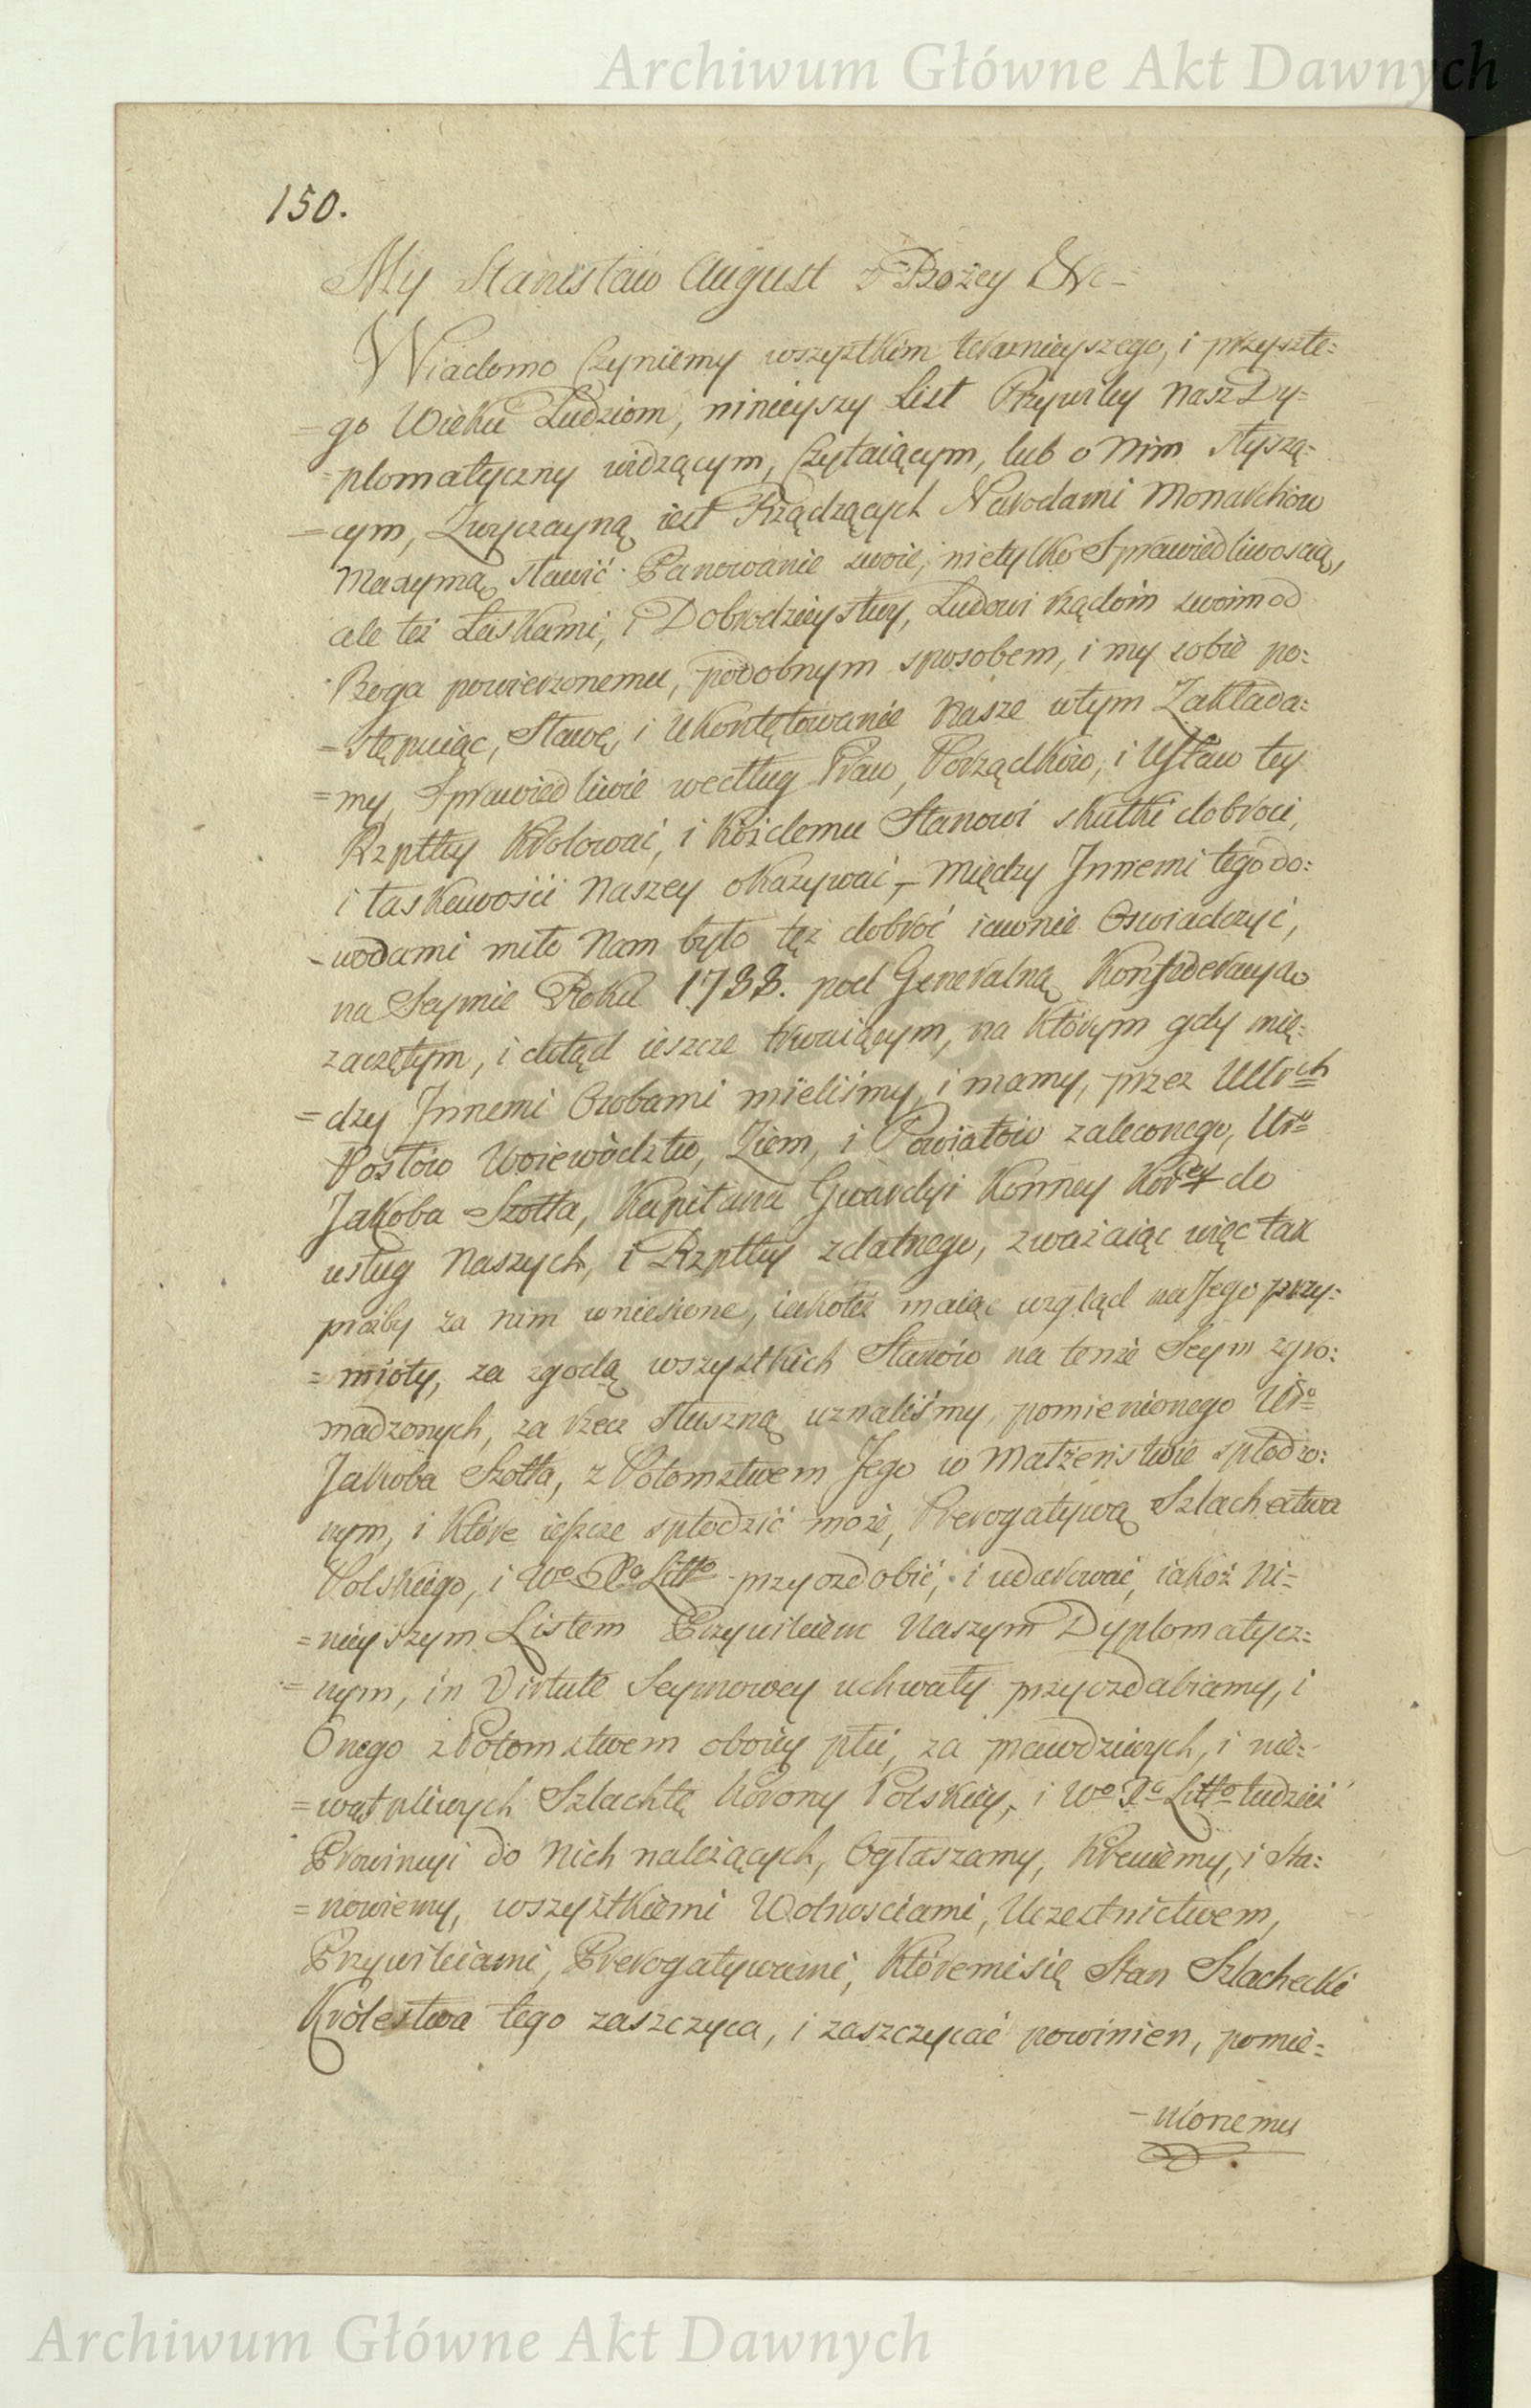 Archiwum Główne Akt Dawnych
150.
My Stanisław August z Bożey &c-
Wiadomo Czyniemy wszystkim teraznieyszego, i przyszłe=
=go Wieku Ludziom, ninieyszy List Przywiley Nasz Dy=
=plomatyczny widzącym, Czytaiącym, lub o Nim słyszą=
=cym, Zwyczayną iest Rządzących Narodami Monarchów
Maxymą, sławić Panowanie swoie, nietylko Sprawiedliwoscią,
ale też Łaskami, i Dobrodzieystwy, Ludowi rządóm swoim od
Boga powierzonemu, podobnym sposobem, i my sobie po=
=stępuiąc, Sławę, i Ukontętowanie Nasze wtym Zakłada=
=my, Sprawiedliwie według Praw, Porządków, i Ustaw tey
Rzpltey Królować, i każdemu Stanowi skutki dobroci,
i łaskawości Naszey okazywać,- Między Innemi tego do=
-wodami miło Nam było tęż dobroć iawnie Oswiadczyć,
na Seymie Roku 1788. pod Generalną Konfederacyą
zaczętym, i dotąd ieszcze trwaiącym, na którym gdy mię=
=dzy Innemi Osobami mieliśmy, i mamy, przez Ullrch
Posłów Woiewództw, Ziem, i Powiatów zaleconego, Uro
Jakoba Szołła, Kapitana Gwardyi Konney Korey do
usług Naszych, i Rzpltey zdatnego, zważaiąc więc tak
prośby za nim wniesione, iakoteż maiąc wzgląd na Jego przy=
=mioty, za zgodą wszystkich Stanów na tenże Seym zgro=
madzonych, za rzecz słuszną uznaliśmy, pomienionego Uro
Jakoba Szołła, z Potomstwem Jego w Małżeństwie spłodzo=
nym, i które ieszcze spłodzić może, Prerogatywą Szlachectwa
Polskiego, i Wo Xa Litto przyozdobić, i udarować, iakoż Ni=
=nieyszym Listem Przywileiem Naszym Dyplomatycz=
=nym, in Virtute Seymowey uchwały przyozdabiamy, i
Onego z Potomstwem oboiey płci, za prawdziwych, i nie=
=wątpliwych Szlachtę Korony Polskiey, i Wo Xa Litto tudzież
Prowincyi do Nich należących, Ogłaszamy, Kreuiemy, i Sta=
=nowiemy, wszystkiemi Wolnosciami, Uczestnictwem,
Przywileiami, Prerogatywami, Któremi się Stan Szlachecki
Królestwa tego zaszczyca, i zaszczycać powinien, pomie=
-nionemu
Archiwum Główne Akt Dawnych